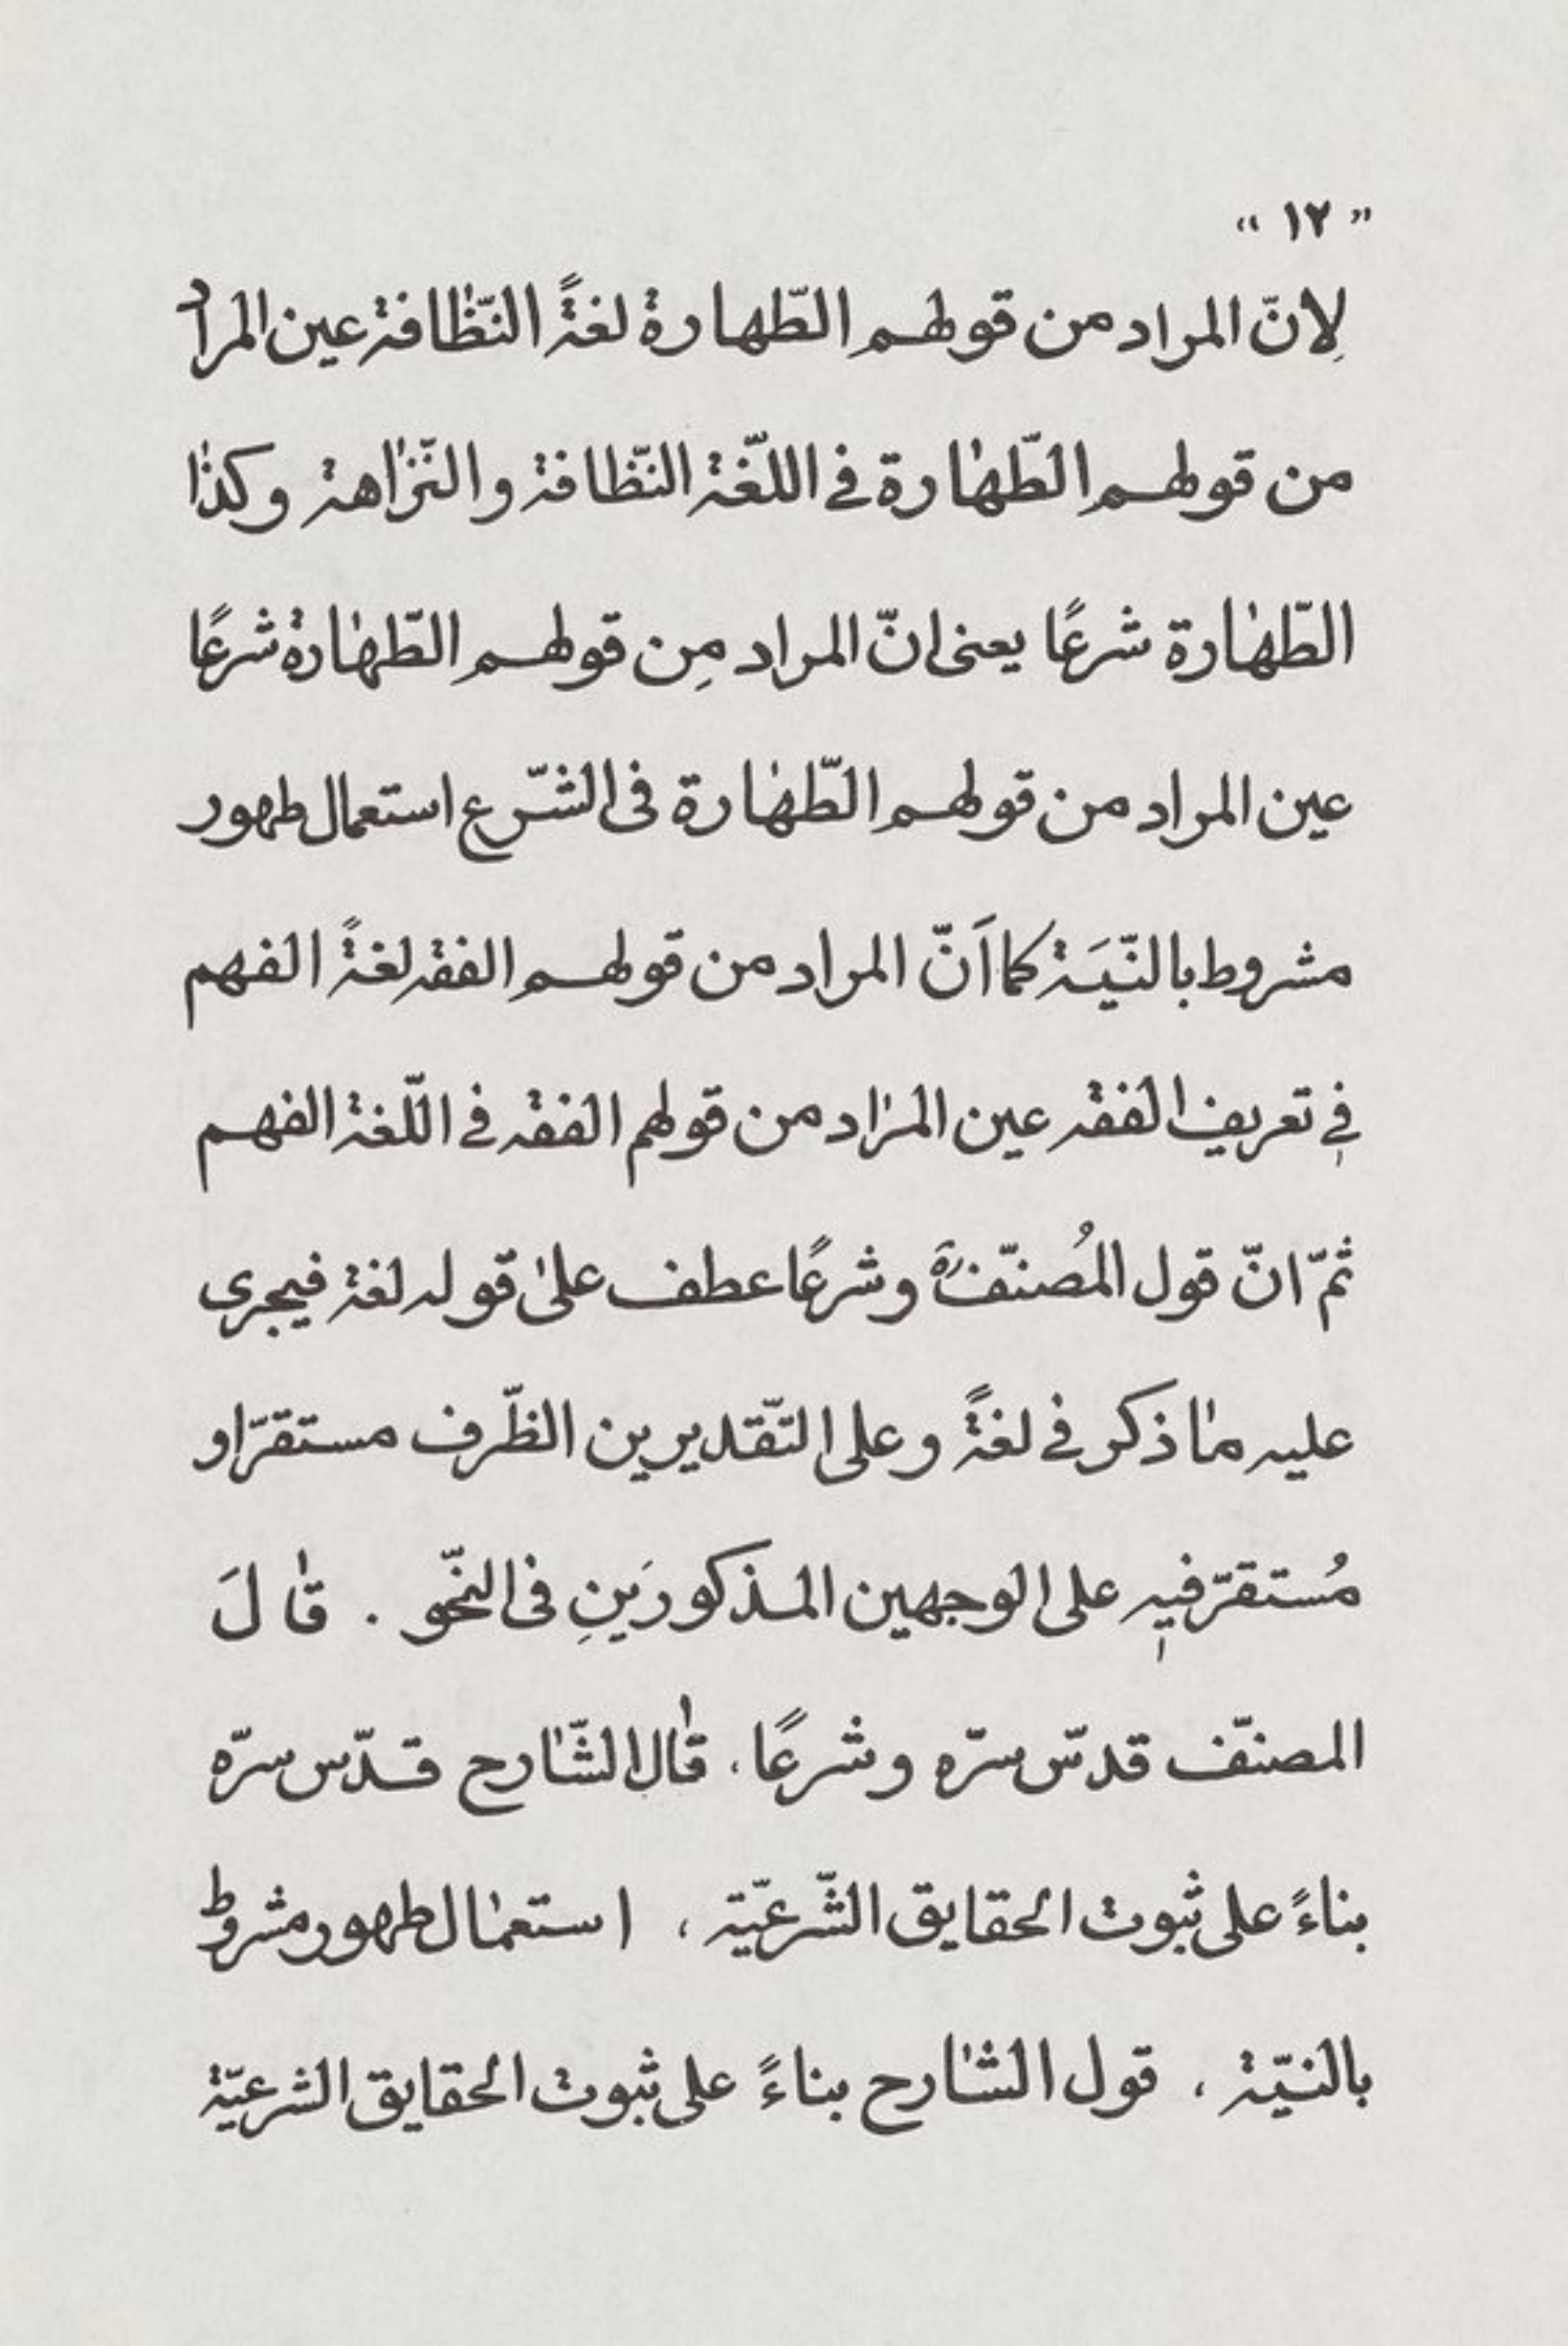 « ١٢ »
لِانّ المراد من قولهم الطّهارةُ لغةً النّظافة عين المراد
من قولهم الطّهارة في اللّغة النّظافة والنّزاهة وكذا
الطّهارة شرعًا يعنى انّ المراد مِن قولهم الطّهارةُ شرعًا
عين المراد من قولهم الطّهارة فى الشّرع استعمال طهور
مشروط بالنّيَة كما اَنّ المراد من قولهم الفقه لغةً الفهم
في تعريف الفقه عين المراد من قولهم الفقه في اللّغة الفهم
ثمّ انّ قول المُصنّف ره وشرعًا عطف على قوله لغة فيجرى
عليه ما ذكر في لغةً وعلى التّقديرين الظّرف مستقرّ او
مُستقرّ فيه على الوجهين المذكورَينِ فى النّحو . قالَ
المصنّف قدّس سرّه وشرعًا، قال الشّارح قدّس سرّه
بناءً على ثبوت الحقايق الشّرعيّة ، استعمال طهور مشروط
بالنيّة ، قول الشارح بناءً على ثبوت الحقايق الشرعيّة